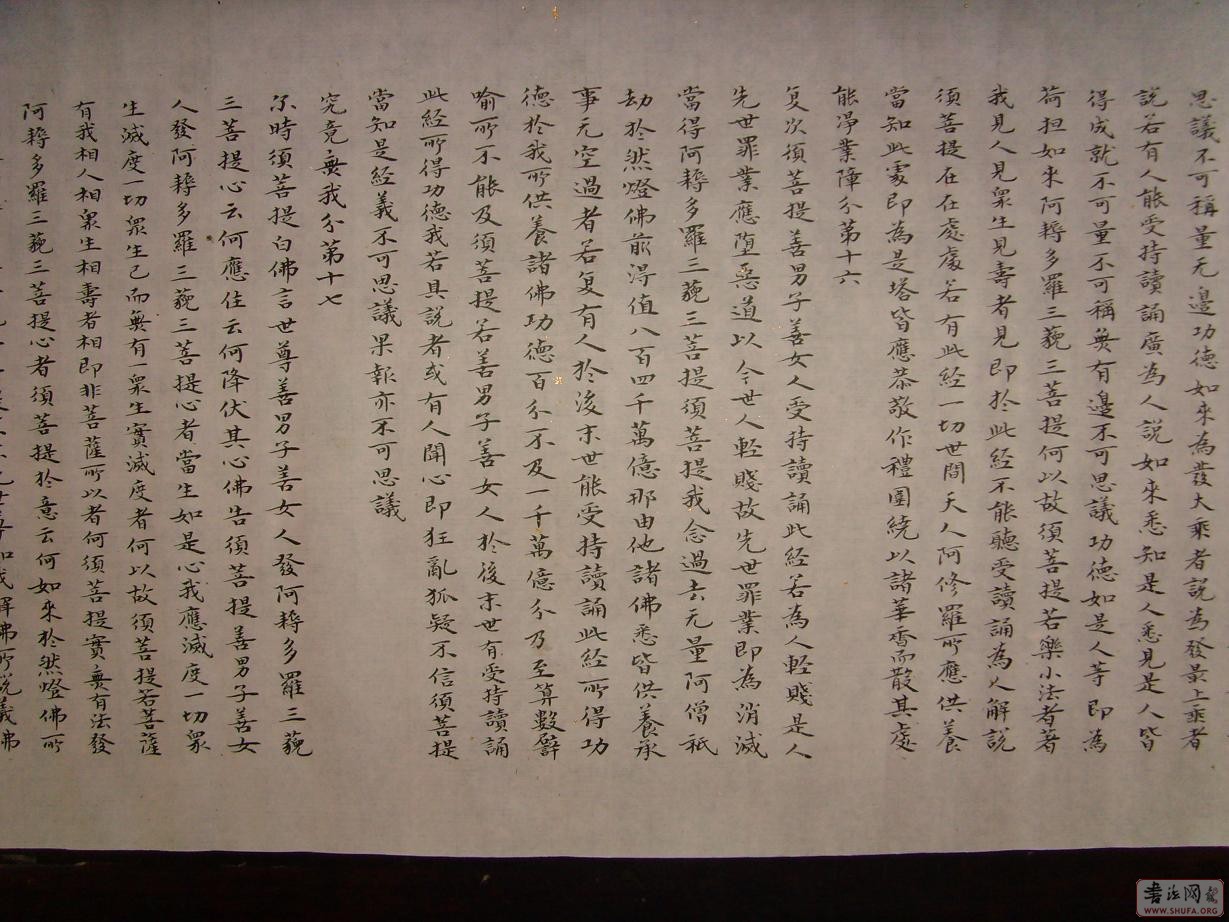 思議不可稱量无邊功德如來為發大乘者說為發最上乘者
說若有人能受持讀誦廣為人說如來悉知是人悉見是人皆
得成就不可量不可稱無有邊不可思議功德如是人等即為
荷担如來阿耨多羅三藐三菩提何以故須菩提若樂小法者著
我見人見眾生見壽者見即於此經不能聽受讀誦為人解說
須菩提在在處處若有此經一切世間天人阿修羅所應供養
當知此處即為是塔皆應恭敬作禮圍繞以諸華香而散其處
能淨業障分第十六
復次須菩提善男子善女人受持讀誦此經若為人輕賤是人
先世罪業應墮惡道以今世人輕賤故先世罪業即為消滅
當得阿耨多羅三藐三菩提須菩提我念過去无量阿僧祇
劫於然燈佛前得值八百四千萬億那由他諸佛悉皆供養承
事无空過者若復有人於後末世能受持讀誦此經所得功
德於我所供養諸佛功德百分不及一千萬億分乃至算數譬
喻所不能及須菩提若善男子善女人於後末世有受持讀誦
此經所得功德我若具說者或有人聞心即狂亂狐疑不信須菩提
當知是經義不可思議果報亦不可思議
究竟無我分第十七
尒時須菩提白佛言世尊善男子善女人發阿耨多羅三藐
三菩提心云何應住云何降伏其心佛告須菩提善男子善女
人發阿耨多羅三藐三菩提心者當生如是心我應滅度一切眾
生滅度一切眾生已而無有一眾生實滅度者何以故須菩提若菩薩
有我相人相眾生相壽者相即非菩薩所以者何須菩提實無有法發
阿耨多羅三藐三菩提心者須菩提於意云何如來於然燈佛所
世尊如我解佛所說義佛
書法网
WWW.SHUFA.ORG